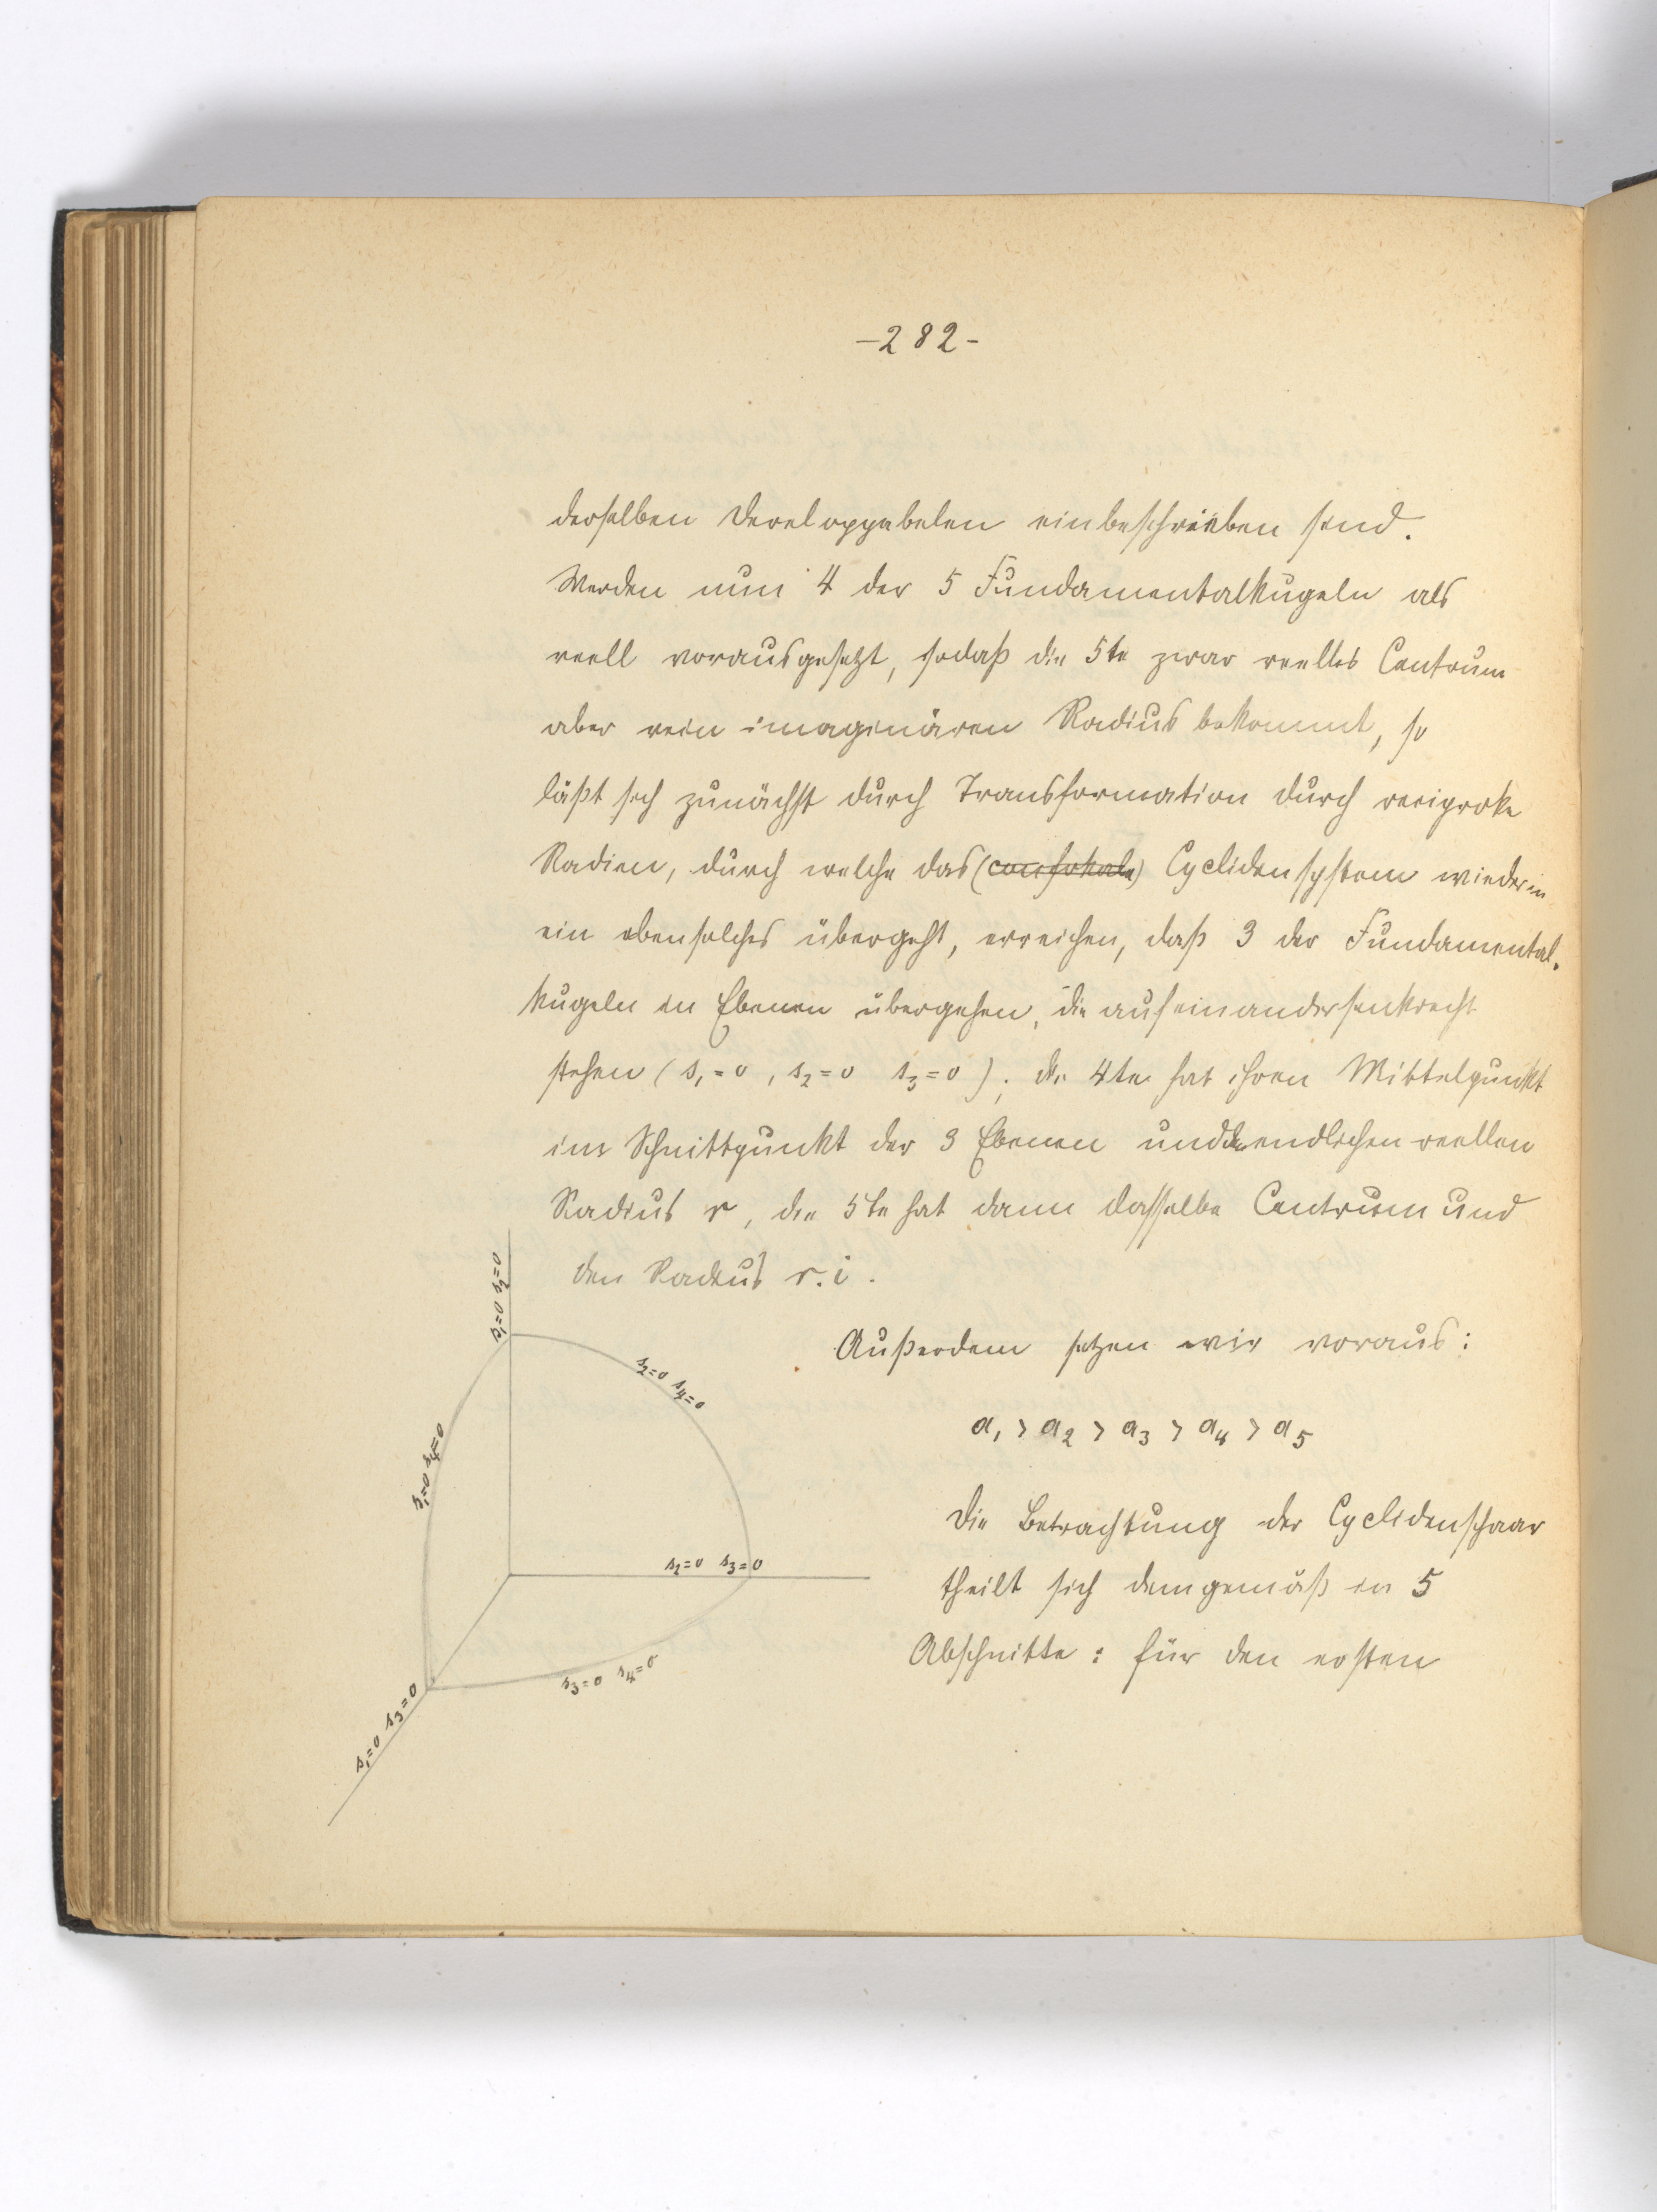 -282-
derselben Developpabelen einbeschrieben sind.
Werden nun 4 der 5 Fundamentalkugeln als
reell vorausgesetzt, sodaß die 5te zwar reelles Centrum
aber rein imaginären Radius bekommt, so
läßt sich zunächst durch Transformation durch reciproke
Radien, durch welche das (confokale) Cyclidensystem wieder in
ein ebensolches übergeht, erreichen, daß 3 der Fundamental-
kugeln in Ebenen übergehen, die aufeinander senkrecht
stehen (s₁=0, s₂=0 s₃=0); die 4te hat ihren Mittelpunkt
im Schnittpunkt der 3 Ebenen und den endlichen reellen
Radius r, die 5te hat dann dasselbe Centrum und
den Radius r.i.
Außerdem setzen wir voraus:
a₁ > a₂ > a₃ > a₄ > a₅
Die Betrachtung der Cyclidenschaar
theilt sich demgemäß in 5
Abschnitte: für den ersten
s₁=0 s₂=0
s₂=0 s₄=0
s₁=0 s₄=0
s₂=0 s₃=0
s₃=0 s₄=0
s₁=0 s₃=0